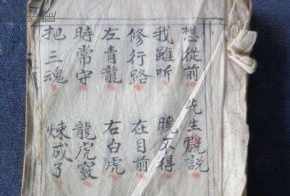 想從前 先生說
我雖听 曉不得
修行路 在目前
左青龍 右白虎
時常守 龍虎
把三魂 煉成了